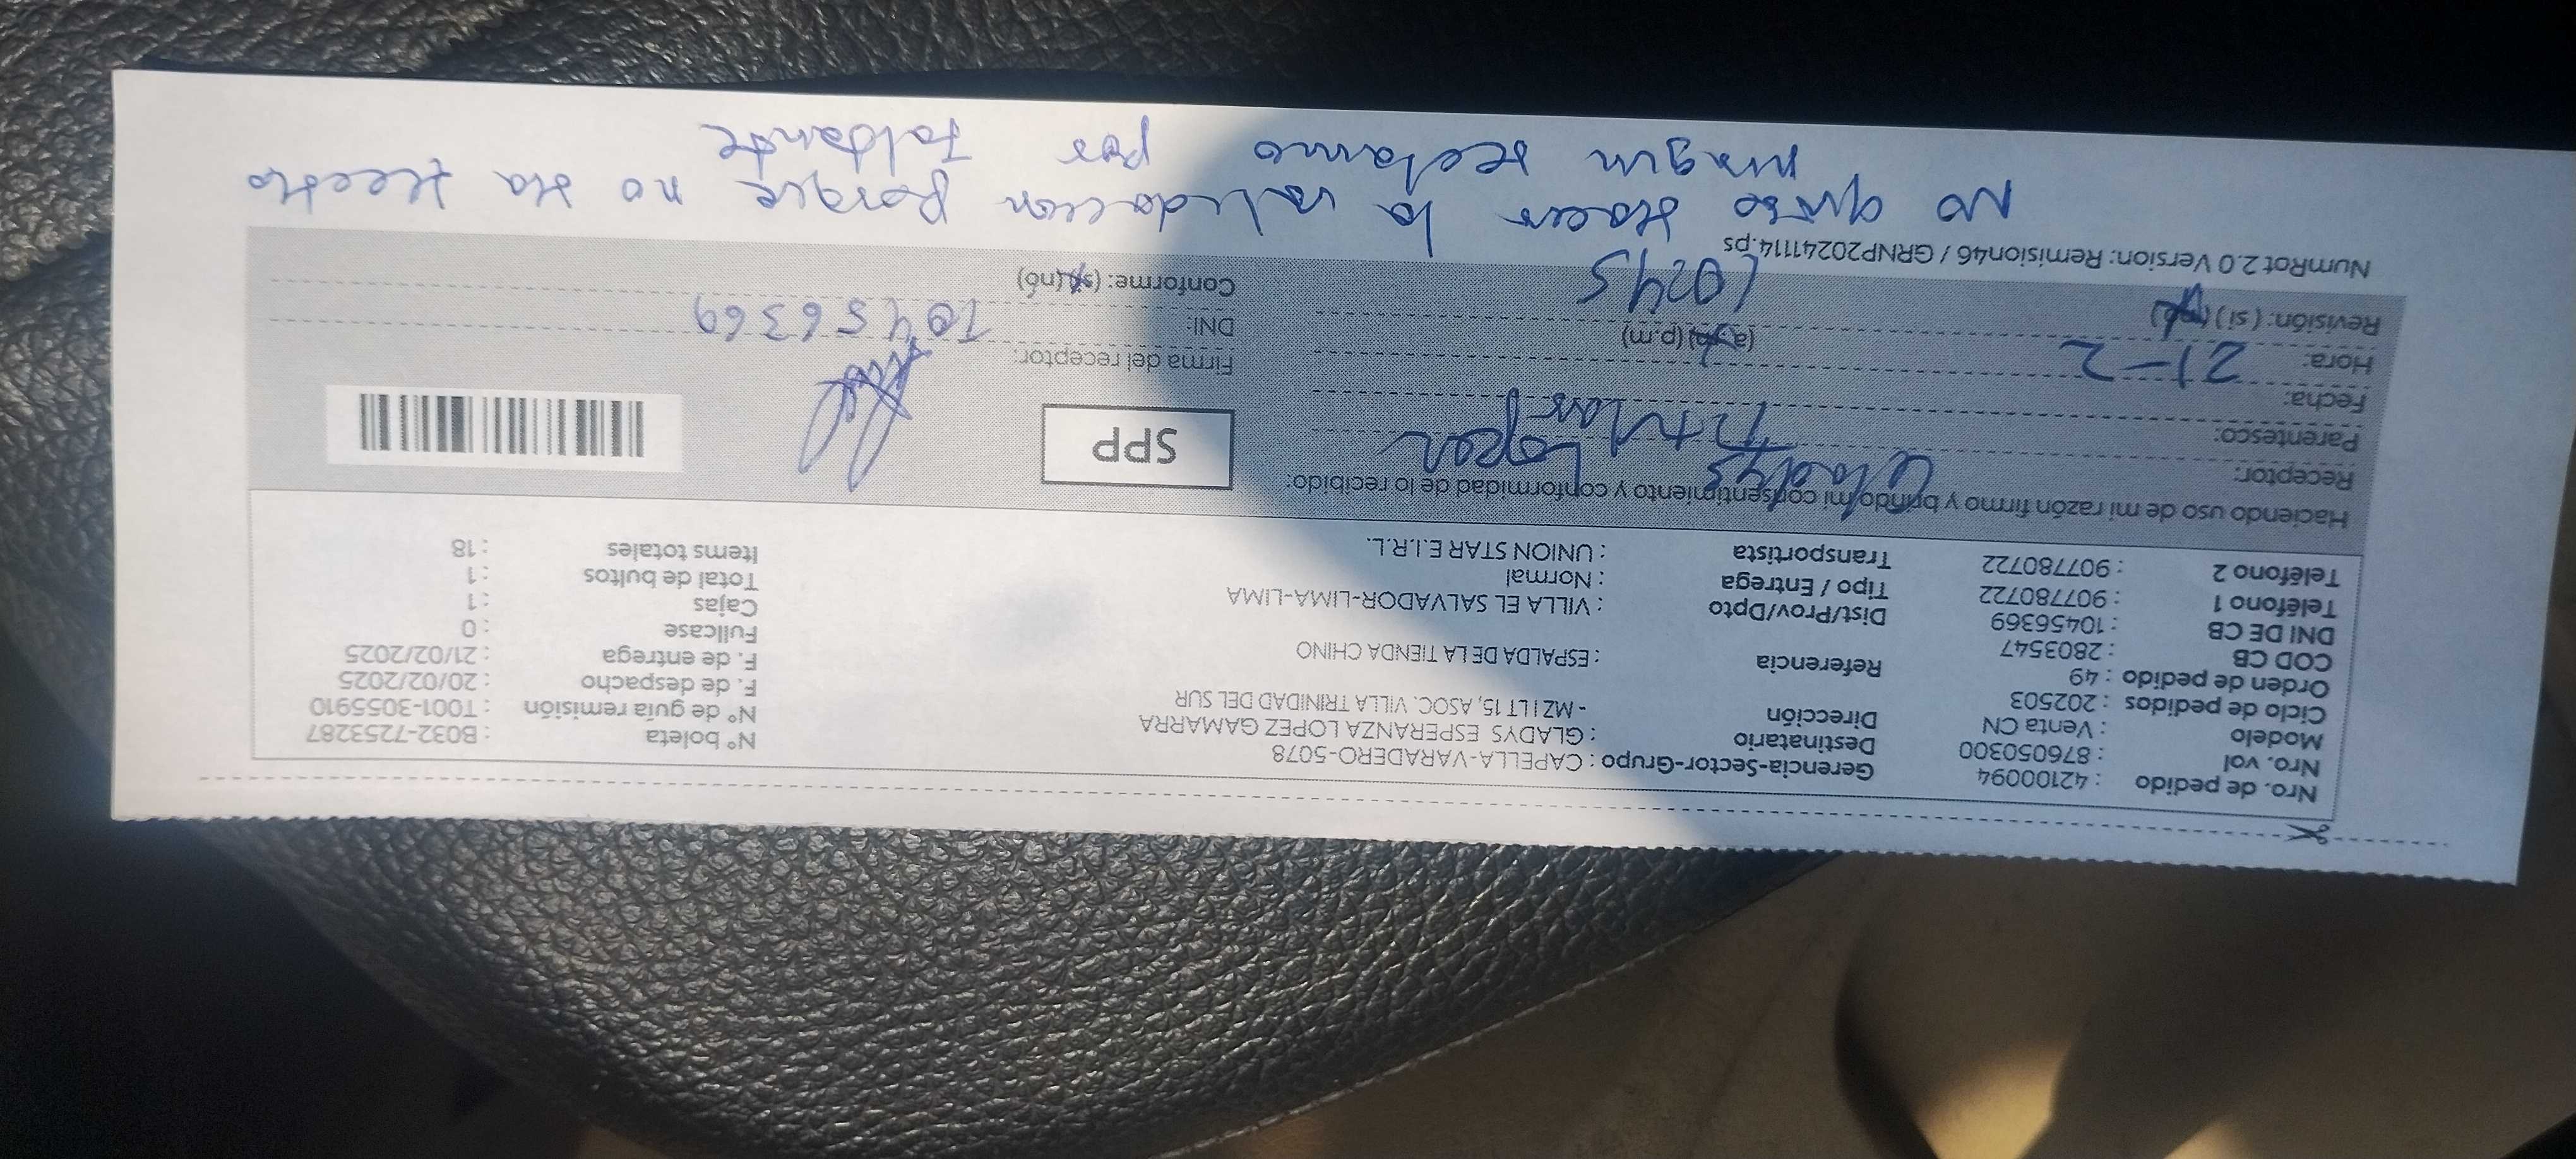 Nro. de pedido : 42100094
Nro. vol : 876050300
Modelo : Venta CN
Ciclo de pedidos : 202503
Orden de pedido : 49
COD CB : 2803547
DNI DE CB : 10456369
Teléfono 1 : 907780722
Teléfono 2 : 907780722
Gerencia-Sector-Grupo : CAPELLA-VARADERO-5078
Destinatario : GLADYS ESPERANZA LOPEZ GAMARRA
Dirección - MZ I LT 15, ASOC. VILLA TRINIDAD DEL SUR
Referencia : ESPALDA DE LA TIENDA CHINO
Dist/Prov/Dpto : VILLA EL SALVADOR-LIMA-LIMA
Tipo / Entrega : Normal
Transportista : UNION STAR E.I.R.L.
N° boleta : B032-7253287
N° de guía remisión : T001-3055910
F. de despacho : 20/02/2025
F. de entrega : 21/02/2025
Fullcase : 0
Cajas : 1
Total de bultos : 1
Items totales : 18
Haciendo uso de mi razón firmo y brindo mi consentimiento y conformidad de lo recibido:
Receptor: Gladys Lopez
Parentesco: Titular
Fecha: 21-2
Hora: (a.m) (p.m) 10:45
Revisión: (si) (no)
SPP
Firma del receptor:
DNI: 10456369
Conforme: (si) (no)
NumRot 2.0 Version: Remision46 / GRNP20241114.ps
No quiso hacer la validacion porque no ha hecho
ningun reclamo por faltante